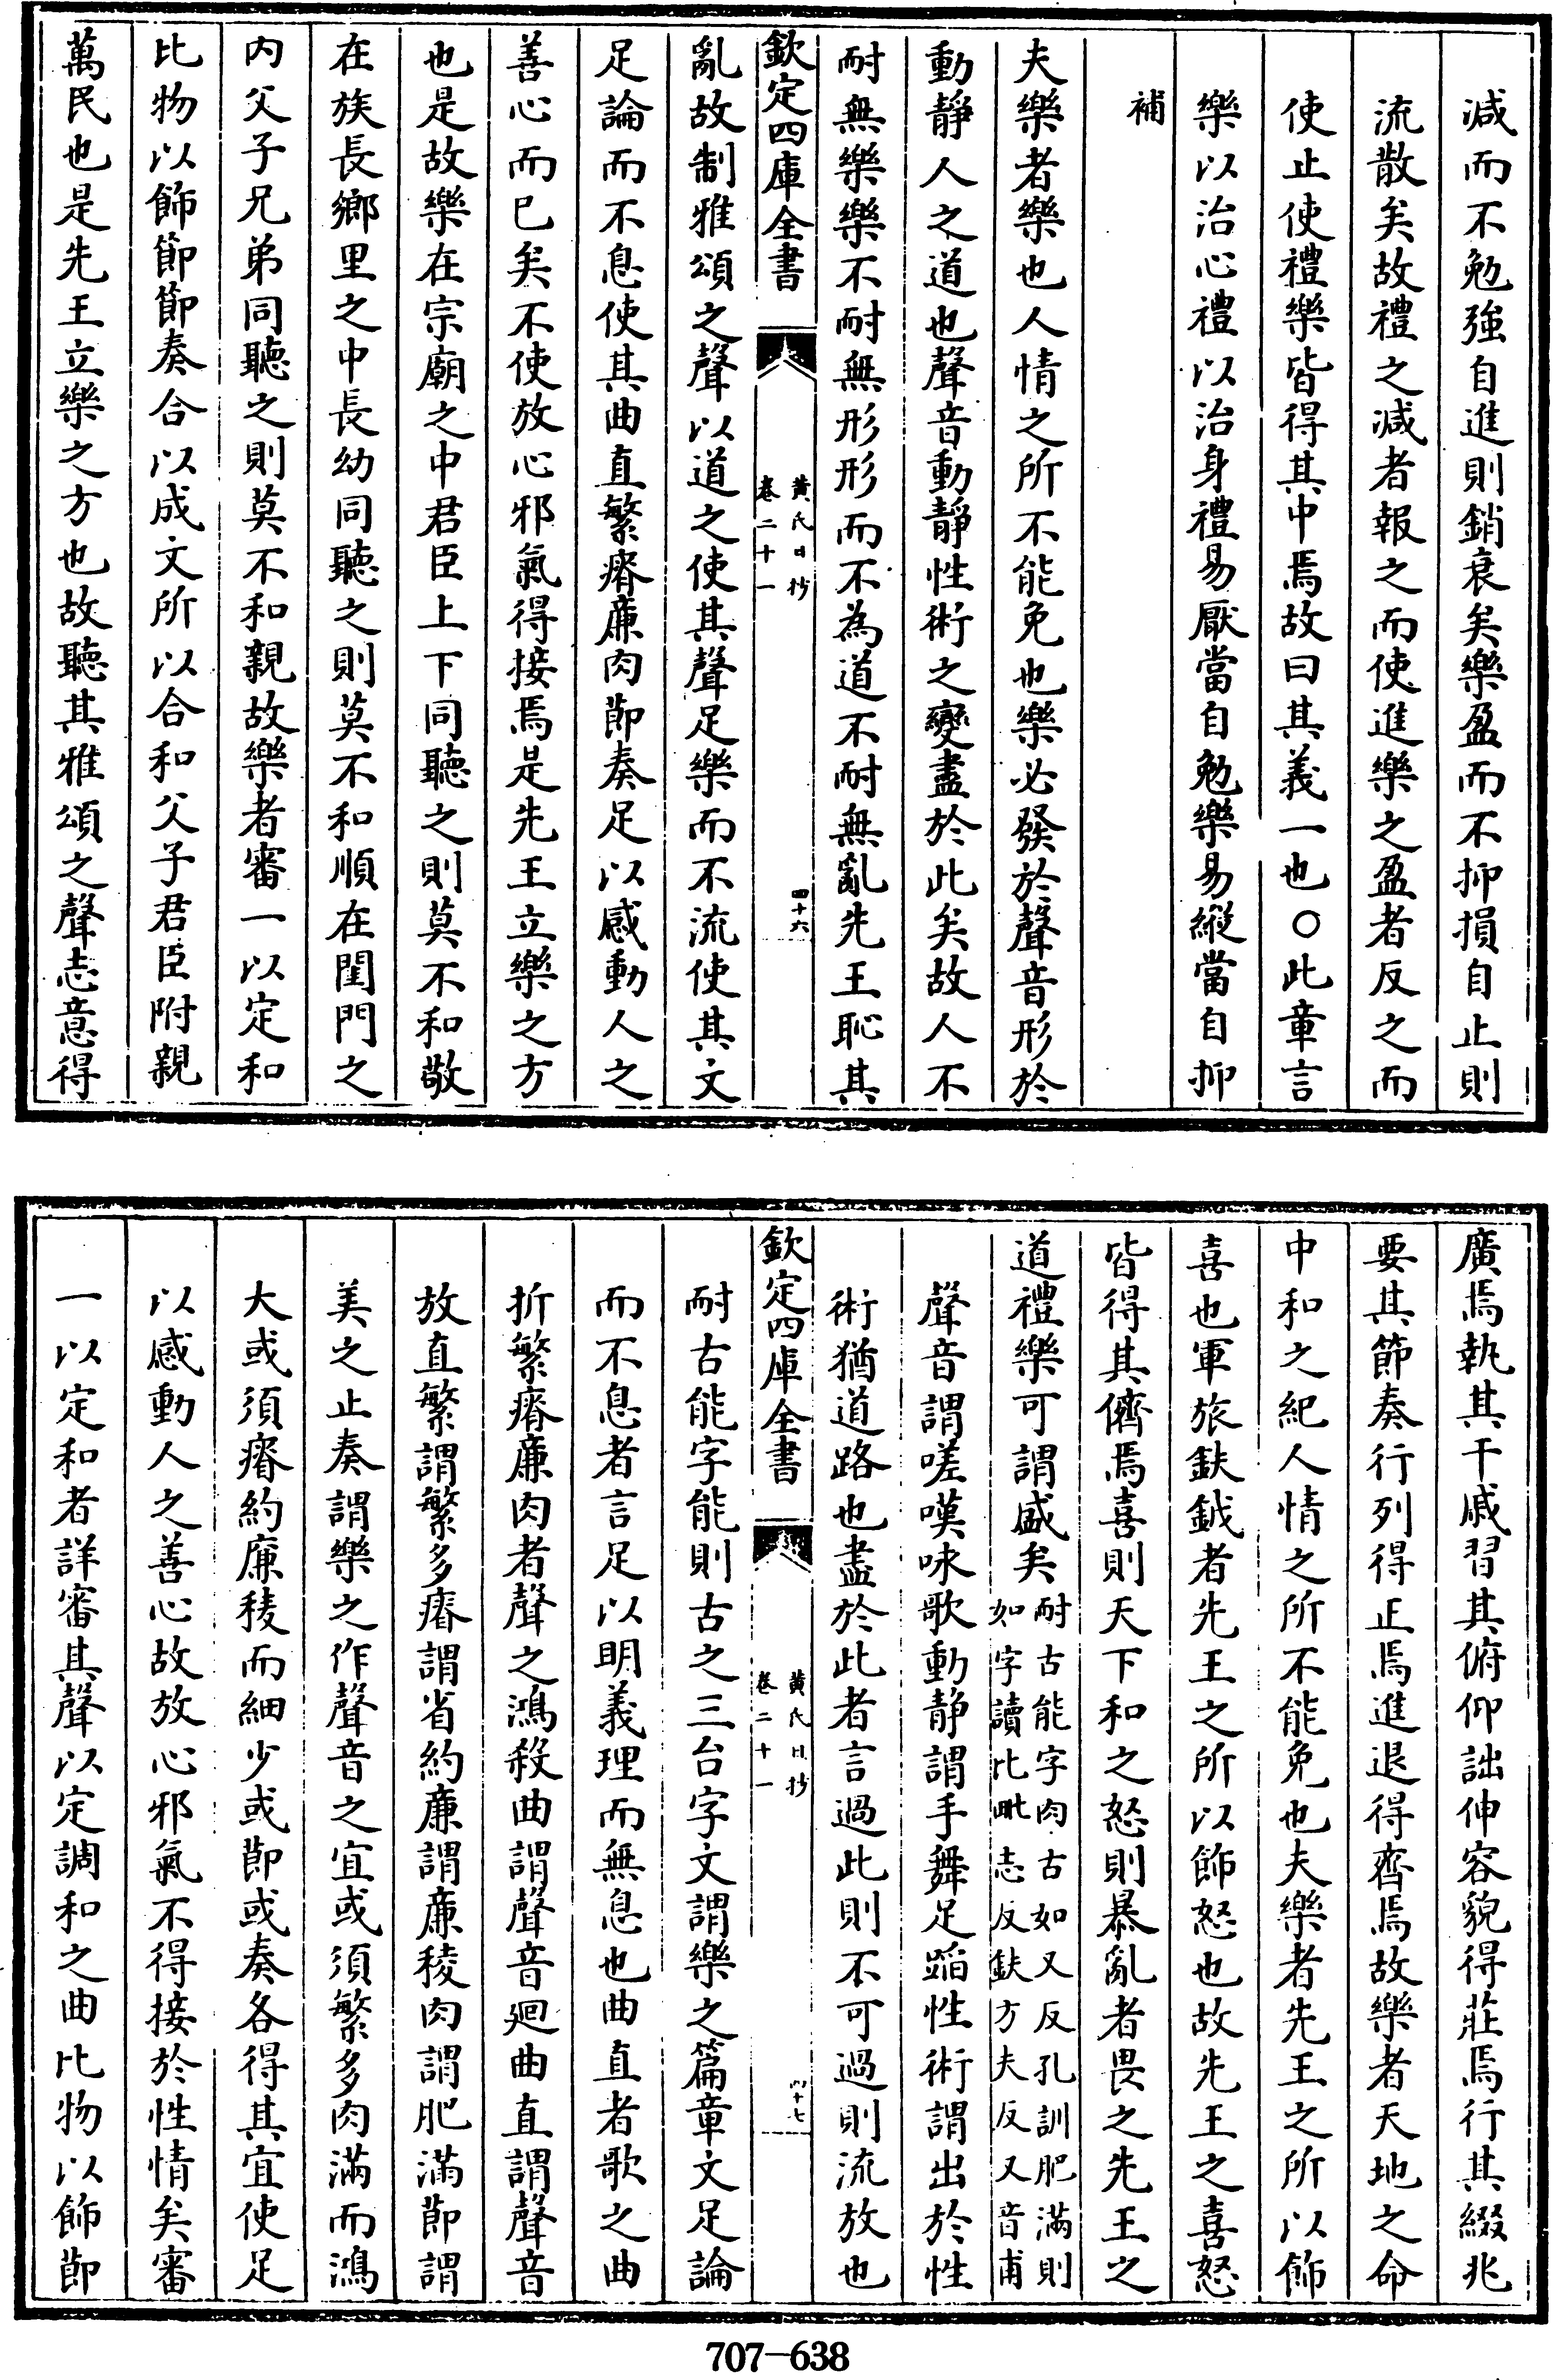 減而不勉強自進則銷衰矣樂盈而不抑損自止則
流散矣故禮之減者報之而使進樂之盈者反之而
使止使禮樂皆得其中焉故曰其義一也○此章言
樂以治心禮以治身禮易厭當自勉樂易縱當自抑
補
夫樂者樂也人情之所不能免也樂必發於聲音形於
動靜人之道也聲音動靜性術之變盡於此矣故人不
耐無樂樂不耐無形形而不為道不耐無亂先王恥其
欽定四庫全書
黃氏日抄
卷二十一
四十六
亂故制雅頌之聲以道之使其聲足樂而不流使其文
足論而不息使其曲直繁瘠廉肉節奏足以感動人之
善心而已矣不使放心邪氣得接焉是先王立樂之方
也是故樂在宗廟之中君臣上下同聽之則莫不和敬
在族長鄉里之中長幼同聽之則莫不和順在閨門之
內父子兄弟同聽之則莫不和親故樂者審一以定和
比物以飾節節奏合以成文所以合和父子君臣附親
萬民也是先王立樂之方也故聽其雅頌之聲志意得
廣焉執其干戚習其俯仰詘伸容貌得莊焉行其綴兆
要其節奏行列得正焉進退得齊焉故樂者天地之命
中和之紀人情之所不能免也夫樂者先王之所以飾
喜也軍旅鈇鉞者先王之所以飾怒也故先王之喜怒
皆得其儕焉喜則天下和之怒則暴亂者畏之先王之
道禮樂可謂盛矣
耐古能字肉古如又反孔訓肥滿則
如字讀比毗志反鈇方夫反又音甫
聲音謂嗟嘆咏歌動靜謂手舞足蹈性術謂出於性
術猶道路也盡於此者言過此則不可過則流放也
欽定四庫全書
黃氏日抄
卷二十一
四十七
耐古能字能則古之三台字文謂樂之篇章文足論
而不息者言足以明義理而無息也曲直者歌之曲
折繁瘠廉肉者聲之鴻殺曲謂聲音廻曲直謂聲音
放直繁謂繁多瘠謂省約廉謂廉稜肉謂肥滿節謂
美之止奏謂樂之作聲音之宜或須繁多肉滿而鴻
大或須瘠約廉稜而細少或節或奏各得其宜使足
以感動人之善心故放心邪氣不得接於性情矣審
一以定和者詳審其聲以定調和之曲比物以飾節
707—638